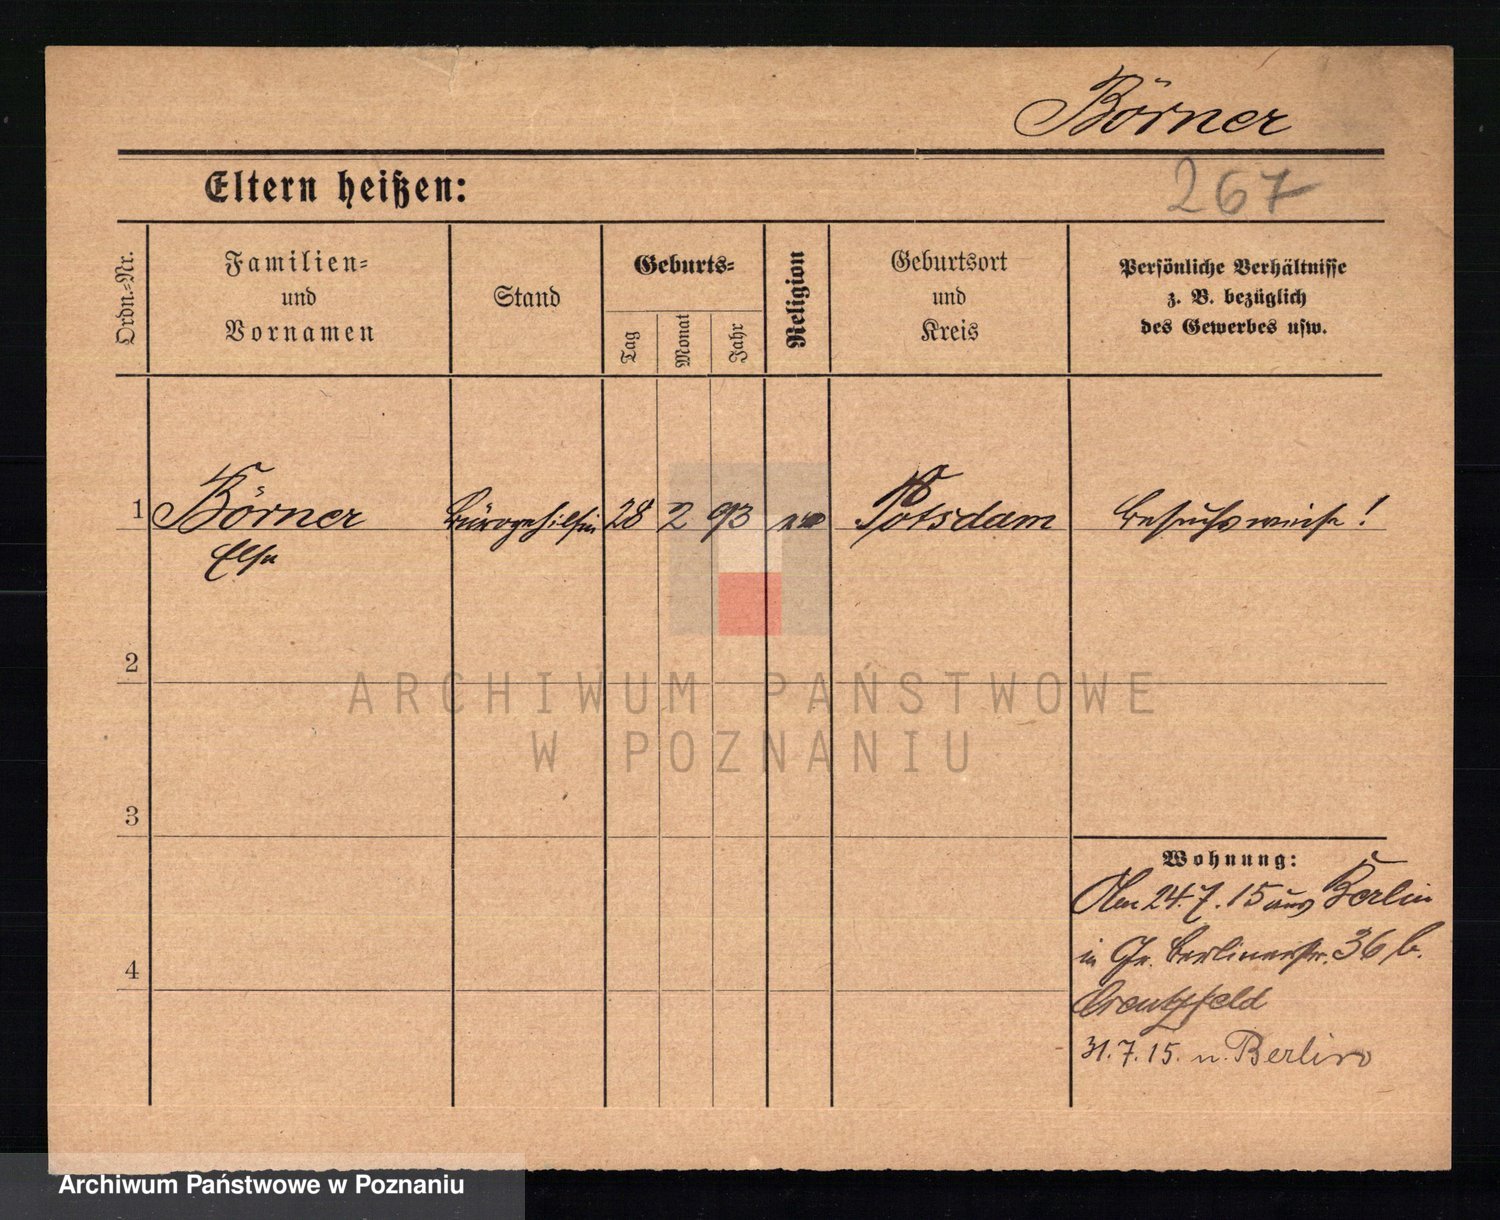 Börner
Eltern heißen:
267
Ordn.-Nr.
Familien-
und
Vornamen
Stand
Geburts-
Tag
Monat
Jahr
Religion
Geburtsort
und
Kreis
Persönliche Verhältnisse
z. B. bezüglich
des Gewerbes usw.
1 Börner Bürogehilfin 28 2 93 ev Potsdam besuchsweise!
Else
2
3
4
Wohnung:
Am 24.7.15 aus Berlin
in Gr. Berlinerstr. 36 b.
Creutzfeld
31.7.15. n. Berlin
ARCHIWUM PAŃSTWOWE
W POZNANIU
Archiwum Państwowe w Poznaniu